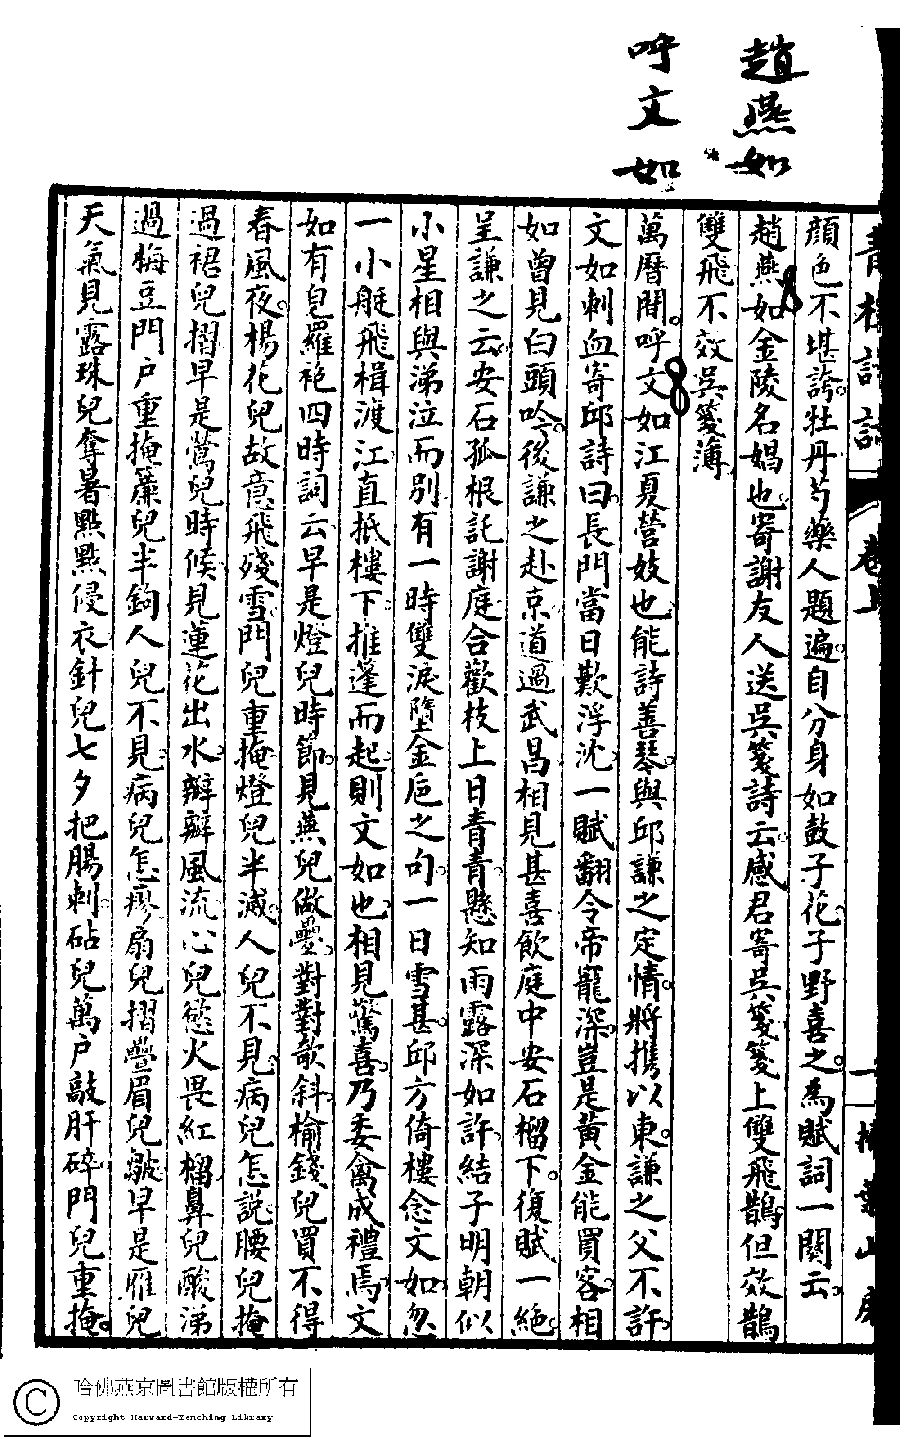 趙燕如
呼文如
青樓詩話 卷上 一 掃葉山房
顏色不堪誇牡丹芍藥人題遍自分身如鼓子花子野喜之為賦詞一闋云
趙燕如金陵名娼也寄謝友人送吳箋詩云感君寄吳箋箋上雙飛鵲但效鵲
雙飛不效吳箋薄
萬曆間呼文如江夏營妓也能詩善琴與邱謙之定情將攜以東謙之父不許
文如刺血寄邱詩曰長門當日歎浮沈一賦翻令帝寵深豈是黃金能買客相
如曾見白頭吟後謙之赴京道過武昌相見甚喜飲庭中安石榴下復賦一絕
呈謙之云安石孤根託謝庭合歡枝上日青青懸知雨露深如許結子明朝似
小星相與涕泣而別有一時雙淚墮金卮之句一日雪甚邱方倚樓念文如忽
一小艇飛楫渡江直抵樓下推蓬而起則文如也相見驚喜乃委禽成禮焉文
如有皂羅袍四時詞云早是燈兒時節見燕兒做疊對對欹斜榆錢兒買不得
春風夜楊花兒故意飛殘雪門兒重掩燈兒半滅人兒不見病兒怎說腰兒掩
過裙兒摺早是鶯兒時候見蓮花出水辦辦風流心兒慾火畏紅榴鼻兒酸涕
過梅豆門戶重掩簾兒半鉤人兒不見病兒怎瘳扇兒摺疊眉兒皺早是雁兒
天氣見露珠兒奪暑點點侵衣針兒七夕把腸刺砧兒萬戶敲肝碎門兒重掩
哈佛燕京圖書館版權所有
Copyright Harvard-Yenching Library